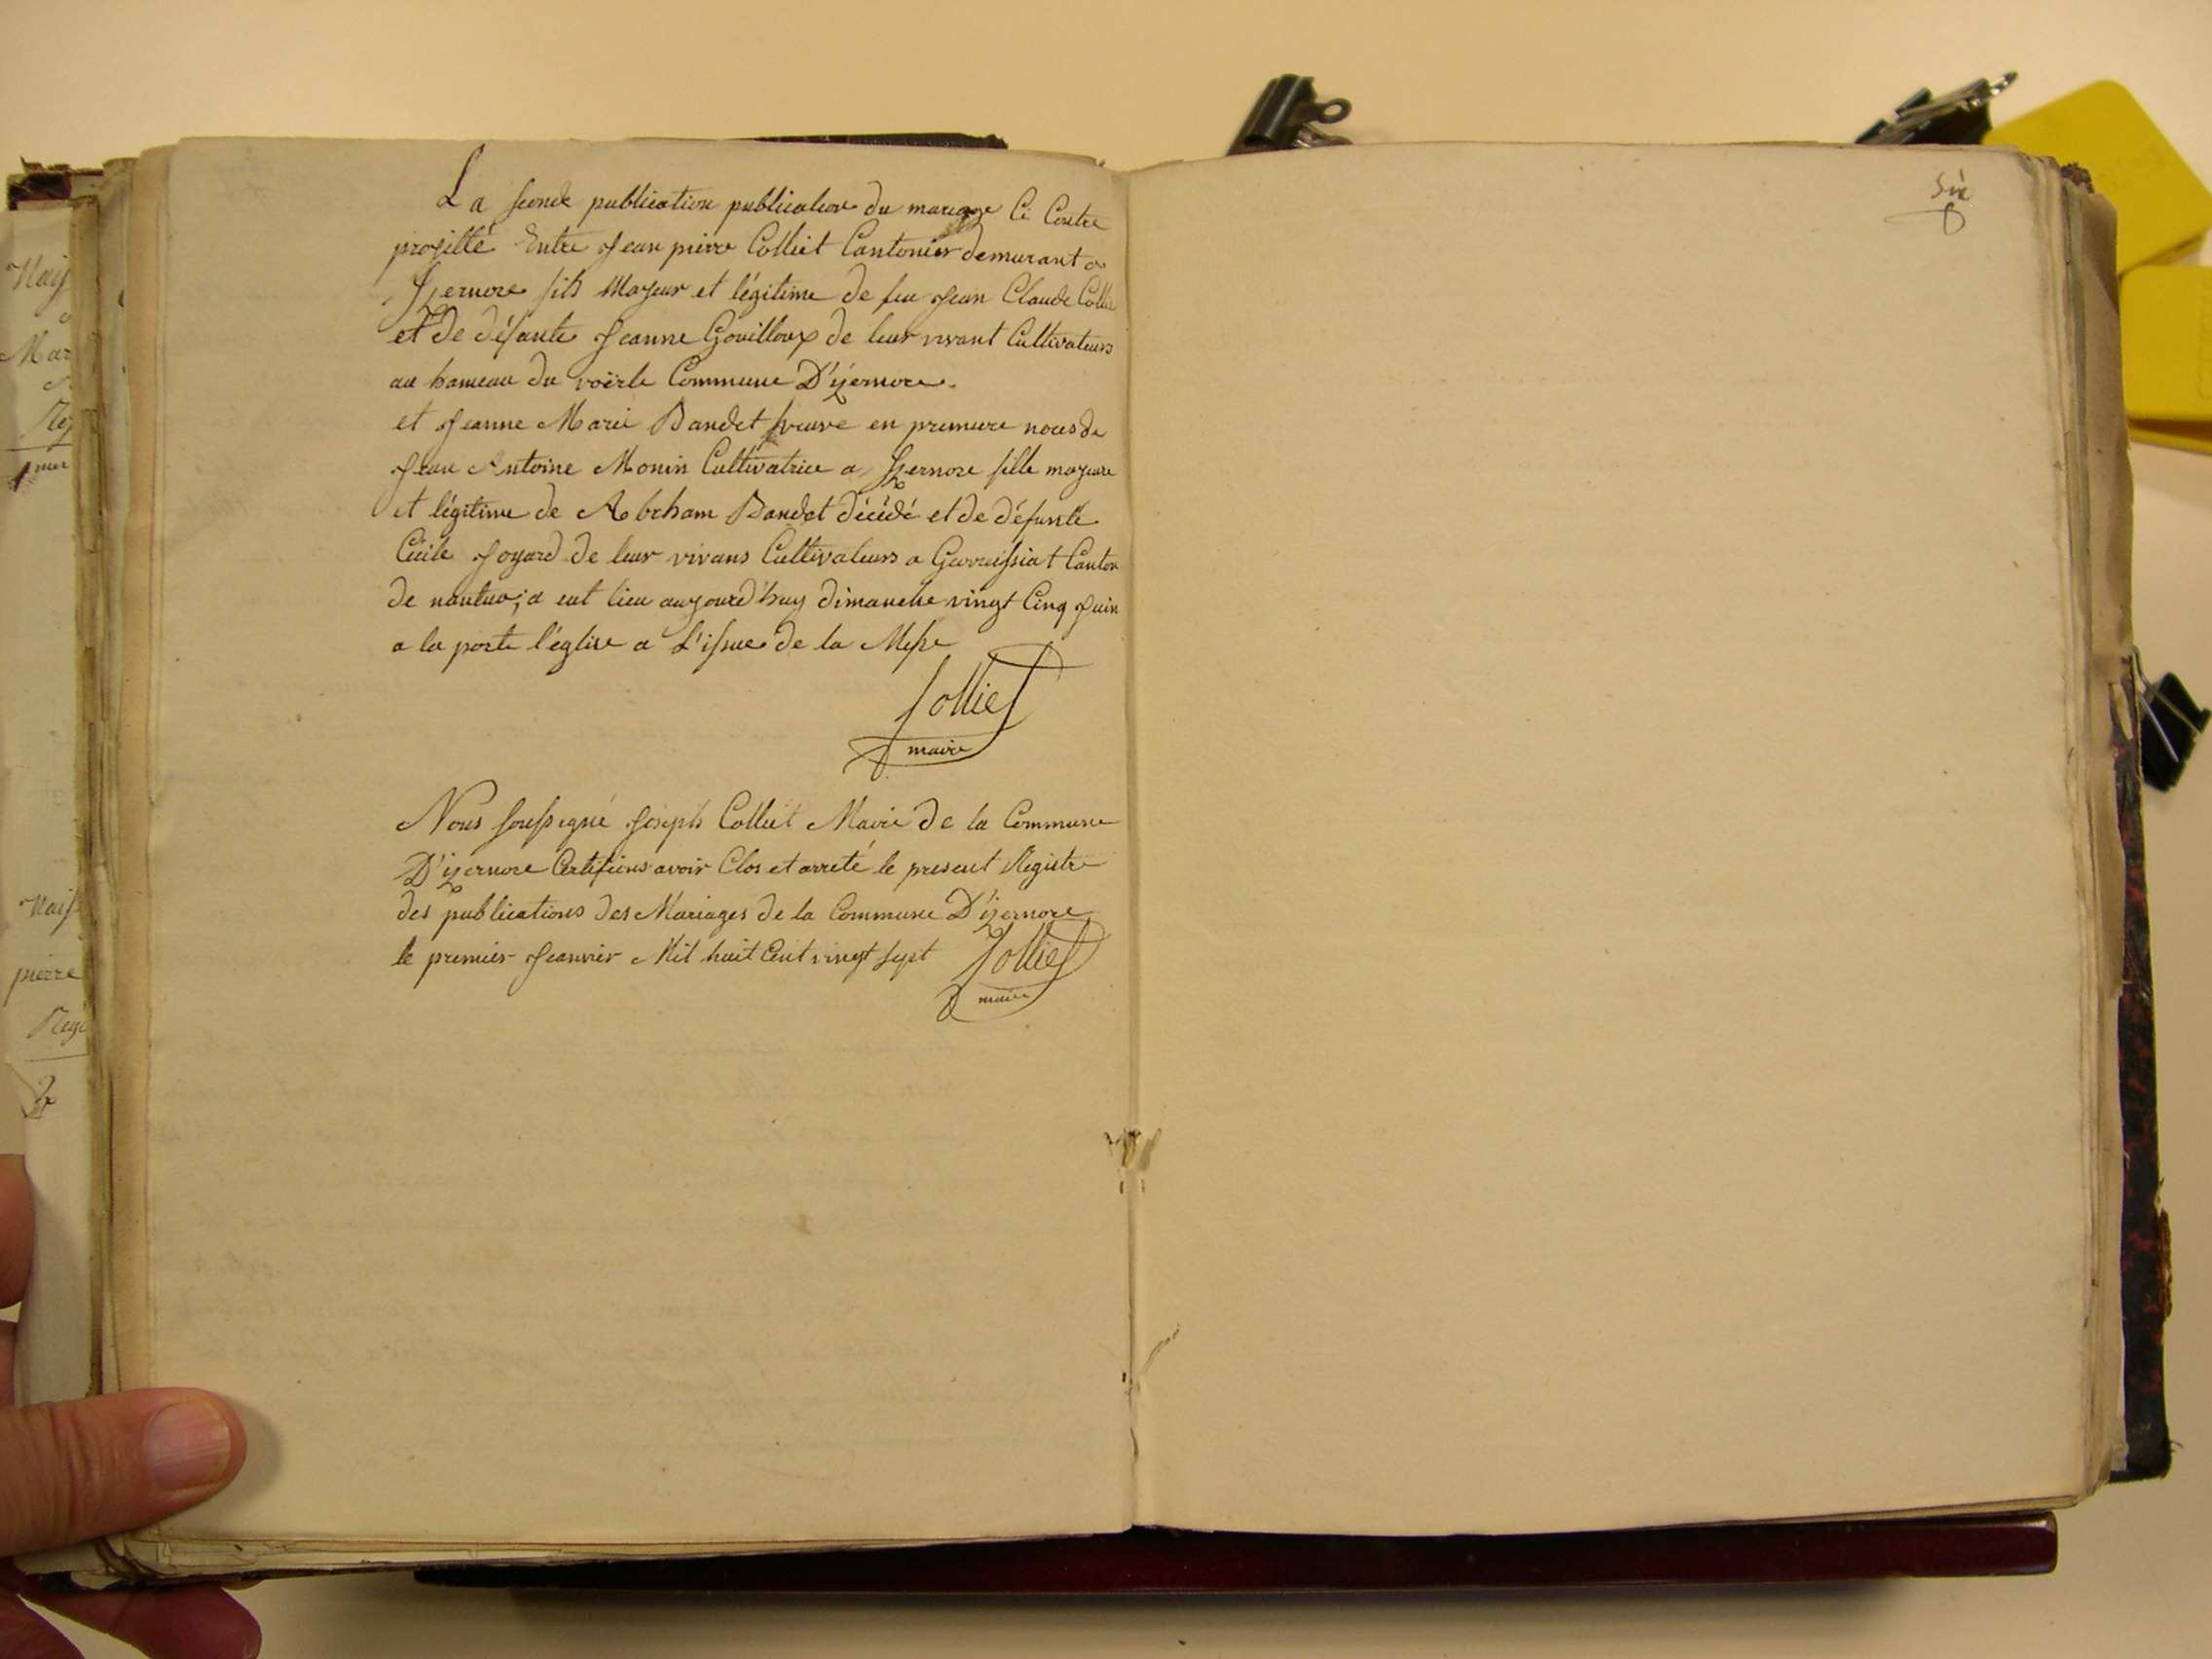 La seconde publication publication du mariage Ci Contre
projetté Entre Jean pierre Colliet Cantonier demurant a
Izernore fils Majeur et légitime de feu Jean Claude Collie
et de défunte Jeanne Gouilloux de leur vivant Cultivateurs
au hameau du voërle Commune D'izernore.
et Jeanne Marie Bandet veuve en premiere noces de
Jean Antoine Monin Cultivatrice a Izernore fille majeure
et légitime de Abrham Bandet décédé et de défunte
Cécile Joyard de leur vivans Cultivateurs a Gevreissiat Canton
de nantua; a eut lieu aujourd'huy dimanche vingt Cinq Juin
a la porte l'église a L'issue de la Messe
Colliet
maire
Nous soussigné Joseph Colliet Maire de la Commune
D'izernore Certifions avoir Clos et arreté le present Registre
des publications des Mariages de la Commune D'izernore
le premier Jeanvier Mil huit Cent vingt sept
Colliet
maire
Six
Naiss
Mar
Reg
1mer
Naiss
pierre
Regi
2